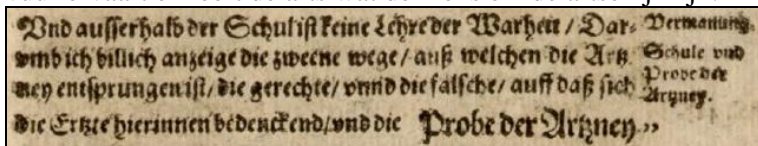 Vnd auſſerhalb der Schul iſt keine Lehre der Warheit / Dar-
vmb ich billich anzeige die zweene wege / auß welchen die Artz
ney entſprungen iſt / die gerechte / vnnd die falſche / auff daß ſich
die Ertzte hierinnen bedenckend / vnd die Probe der Artzney
Vermanung.
Schule vnd
Probe der
Artzney.